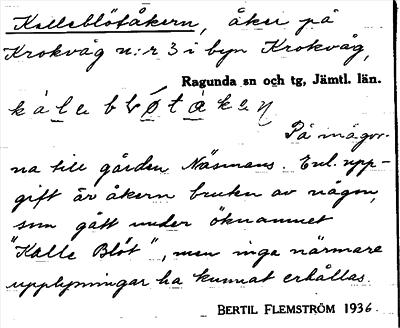 Kalleblötåkern, åker på
Krokvåg n:r 3 i byn Krokvåg,
Ragunda sn og tg, Jämtl. län.
kaleblǿtakeṇ
På mågor-
na till gården Näsmans. Enl. upp-
gift är åkern bruten av någon,
som gått under öknamnet
"Kalle Blöt", men inga närmare
upplysningar ha kunnat erhållas.
BERTIL FLEMSTRÖM 1936.